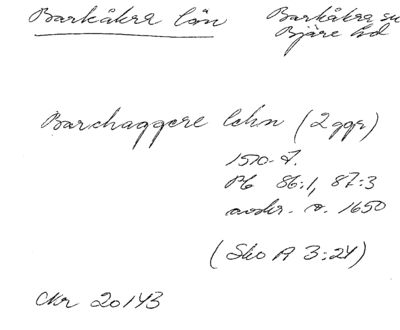 Barkåkra län
Barkåkra sn
Bjäre hd
Barchaggere lehn (2 ggr)
1570-t.
Pb 86:1, 87:3
avskr. o. 1650
(Sko A 3:24)
Ckr 20143